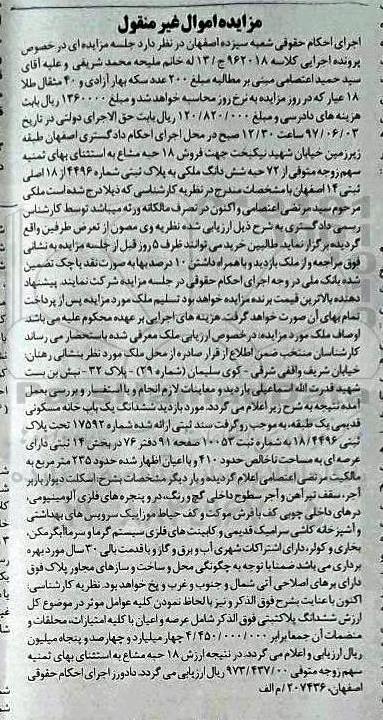 مزایده اموال غیر منقول
اجرای احکام حقوقی شعبه سیزده اصفهان در نظر دارد جلسه مزایده ای در خصوص
پرونده اجرایی کلاسه ۹۶۲۰۱۸ ج/۱۳ له خانم ملیحه محمد شریفی و علیه آقای
سید حمید اعتصامی مبنی بر مطالبه مبلغ ۲۰۰ عدد سکه بهار آزادی و ۴۰ مثقال طلا
۱۸ عیار که در روز مزایده به نرخ روز محاسبه خواهد شد و مبلغ ۱۳۶۰۰۰۰ ریال بابت
هزینه های دادرسی و مبلغ ۱۲۰/۸۲۰/۰۰۰ ریال بابت حق الاجرای دولتی در تاریخ
۹۷/۰۶/۰۳ ساعت ۱۲/۳۰ صبح در محل اجرای احکام دادگستری اصفهان طبقه
زیرزمین خیابان شهید نیکبخت جهت فروش ۱۸ حبه مشاع به استثنای بهای ثمنیه
سهم زوجه متوفی از ۷۲ حبه شش دانگ ملکی به پلاک ثبتی شماره ۴۴۹۶ از ۱۸ اصلی
ثبتی ۱۴ اصفهان با مشخصات مندرج در نظریه کارشناسی که ذیلا درج شده است ملکی
مرحوم سید مرتضی اعتصامی و اکنون در تصرف مالکانه ورثه میباشد توسط کارشناس
رسمی دادگستری به شرح ذیل ارزیابی شده نظریه وی مصون از تعرض طرفین واقع
گردیده برگزار نماید. طالبین خرید می توانند ظرف ۵ روز قبل از جلسه مزایده به نشانی
فوق مراجعه و از ملک بازدید و با همراه داشتن ۱۰ درصد بها به صورت نقد یا چک تضمین
شده بانک ملی در وجه اجرای احکام حقوقی در جلسه مزایده شرکت نمایند. پیشنهاد
دهنده بالاترین قیمت برنده مزایده خواهد بود تسلیم ملک مورد مزایده پس از پرداخت
تمام بهای آن صورت خواهد گرفت. هزینه های اجرایی بر عهده محکوم علیه می باشد.
اوصاف ملک مورد مزایده: در خصوص ارزیابی ملک معرفی شده باستحضار می رساند
کارشناسان منتخب ضمن اطلاع از قرار صادره از محل ملک مورد نظر بنشانی رهنان،
خیابان شریف واقفی شرقی - کوی سلیمان (شماره ۳۹) - پلاک ۳۲ - نبش بن بست
شهید قدرت الله اسماعیلی بازدید و معاینات لازم انجام و با استفسار و بررسی بعمل
آمده نتیجه به شرح زیر اعلام می گردد. مورد بازدید ششدانگ یک باب خانه مسکونی
قدیمی یک طبقه، به موجب رو گرفت سند ثبتی ارائه شده شماره ۱۷۵۹۲ تحت پلاک
ثبتی ۱۸/۴۴۹۶ به شماره ثبت ۱۰۰۵۳ صفحه ۹۱ دفتر ۷۶ در بخش ۱۴ ثبتی دارای
عرصه ای به مساحت ناخالص حدود ۴۱۰ و با اعیان اظهار شده حدود ۲۳۵ متر مربع به
مالکیت مرتضی اعتصامی اعلام گردیده و بار دیگر مشخصات بشرح: اسکلت دیوار باربر
آجر، سقف تیرآهن و آجر سطوح داخلی گچ و رنگ، در و پنجره های فلزی آلومینیومی،
درهای داخلی چوبی کف با فرش موکت و کف حیاط موزاییک سرویس های بهداشتی
و آشپزخانه کاشی سرامیک قدیمی و کابینت های فلزی سیستم گرما و سرما آبگرمکن،
بخاری و کولر، دارای اشتراکات شهری آب و برق و گاز و با قدمت بالی ۳۰ سال مورد بهره
برداری می باشد ضمنا با توجه به چگونگی محل و ساخت و سازهای مجاور پلاک فوق
دارای برهای اصلاحی آتی شمال و جنوب و غرب و پخ خواهد بود. نظریه کارشناسی:
اکنون با عنایت بشرح فوق الذکر و نیز با لحاظ نمودن کلیه عوامل موثر در موضوع کل
ارزش ششدانگ پلاک ثبتی فوق الذکر شامل عرصه و اعیان با کلیه امتیازات، محلقات و
منضمات آن جمعا برابر ۴/۴۵۰/۰۰۰/۰۰۰ چهار میلیارد و چهارصد و پنجاه میلیون
ریال ارزیابی و اعلام می گردد. در نتیجه ارزش ۱۸ حبه مشاع به استثنای بهای ثمنیه
سهم زوجه متوفی ۹۷۳/۴۳۷/۰۰ ریال ارزیابی می گردد. دادورز اجرای احکام حقوقی
اصفهان. ۲۰۷۴۳۶/ م الف